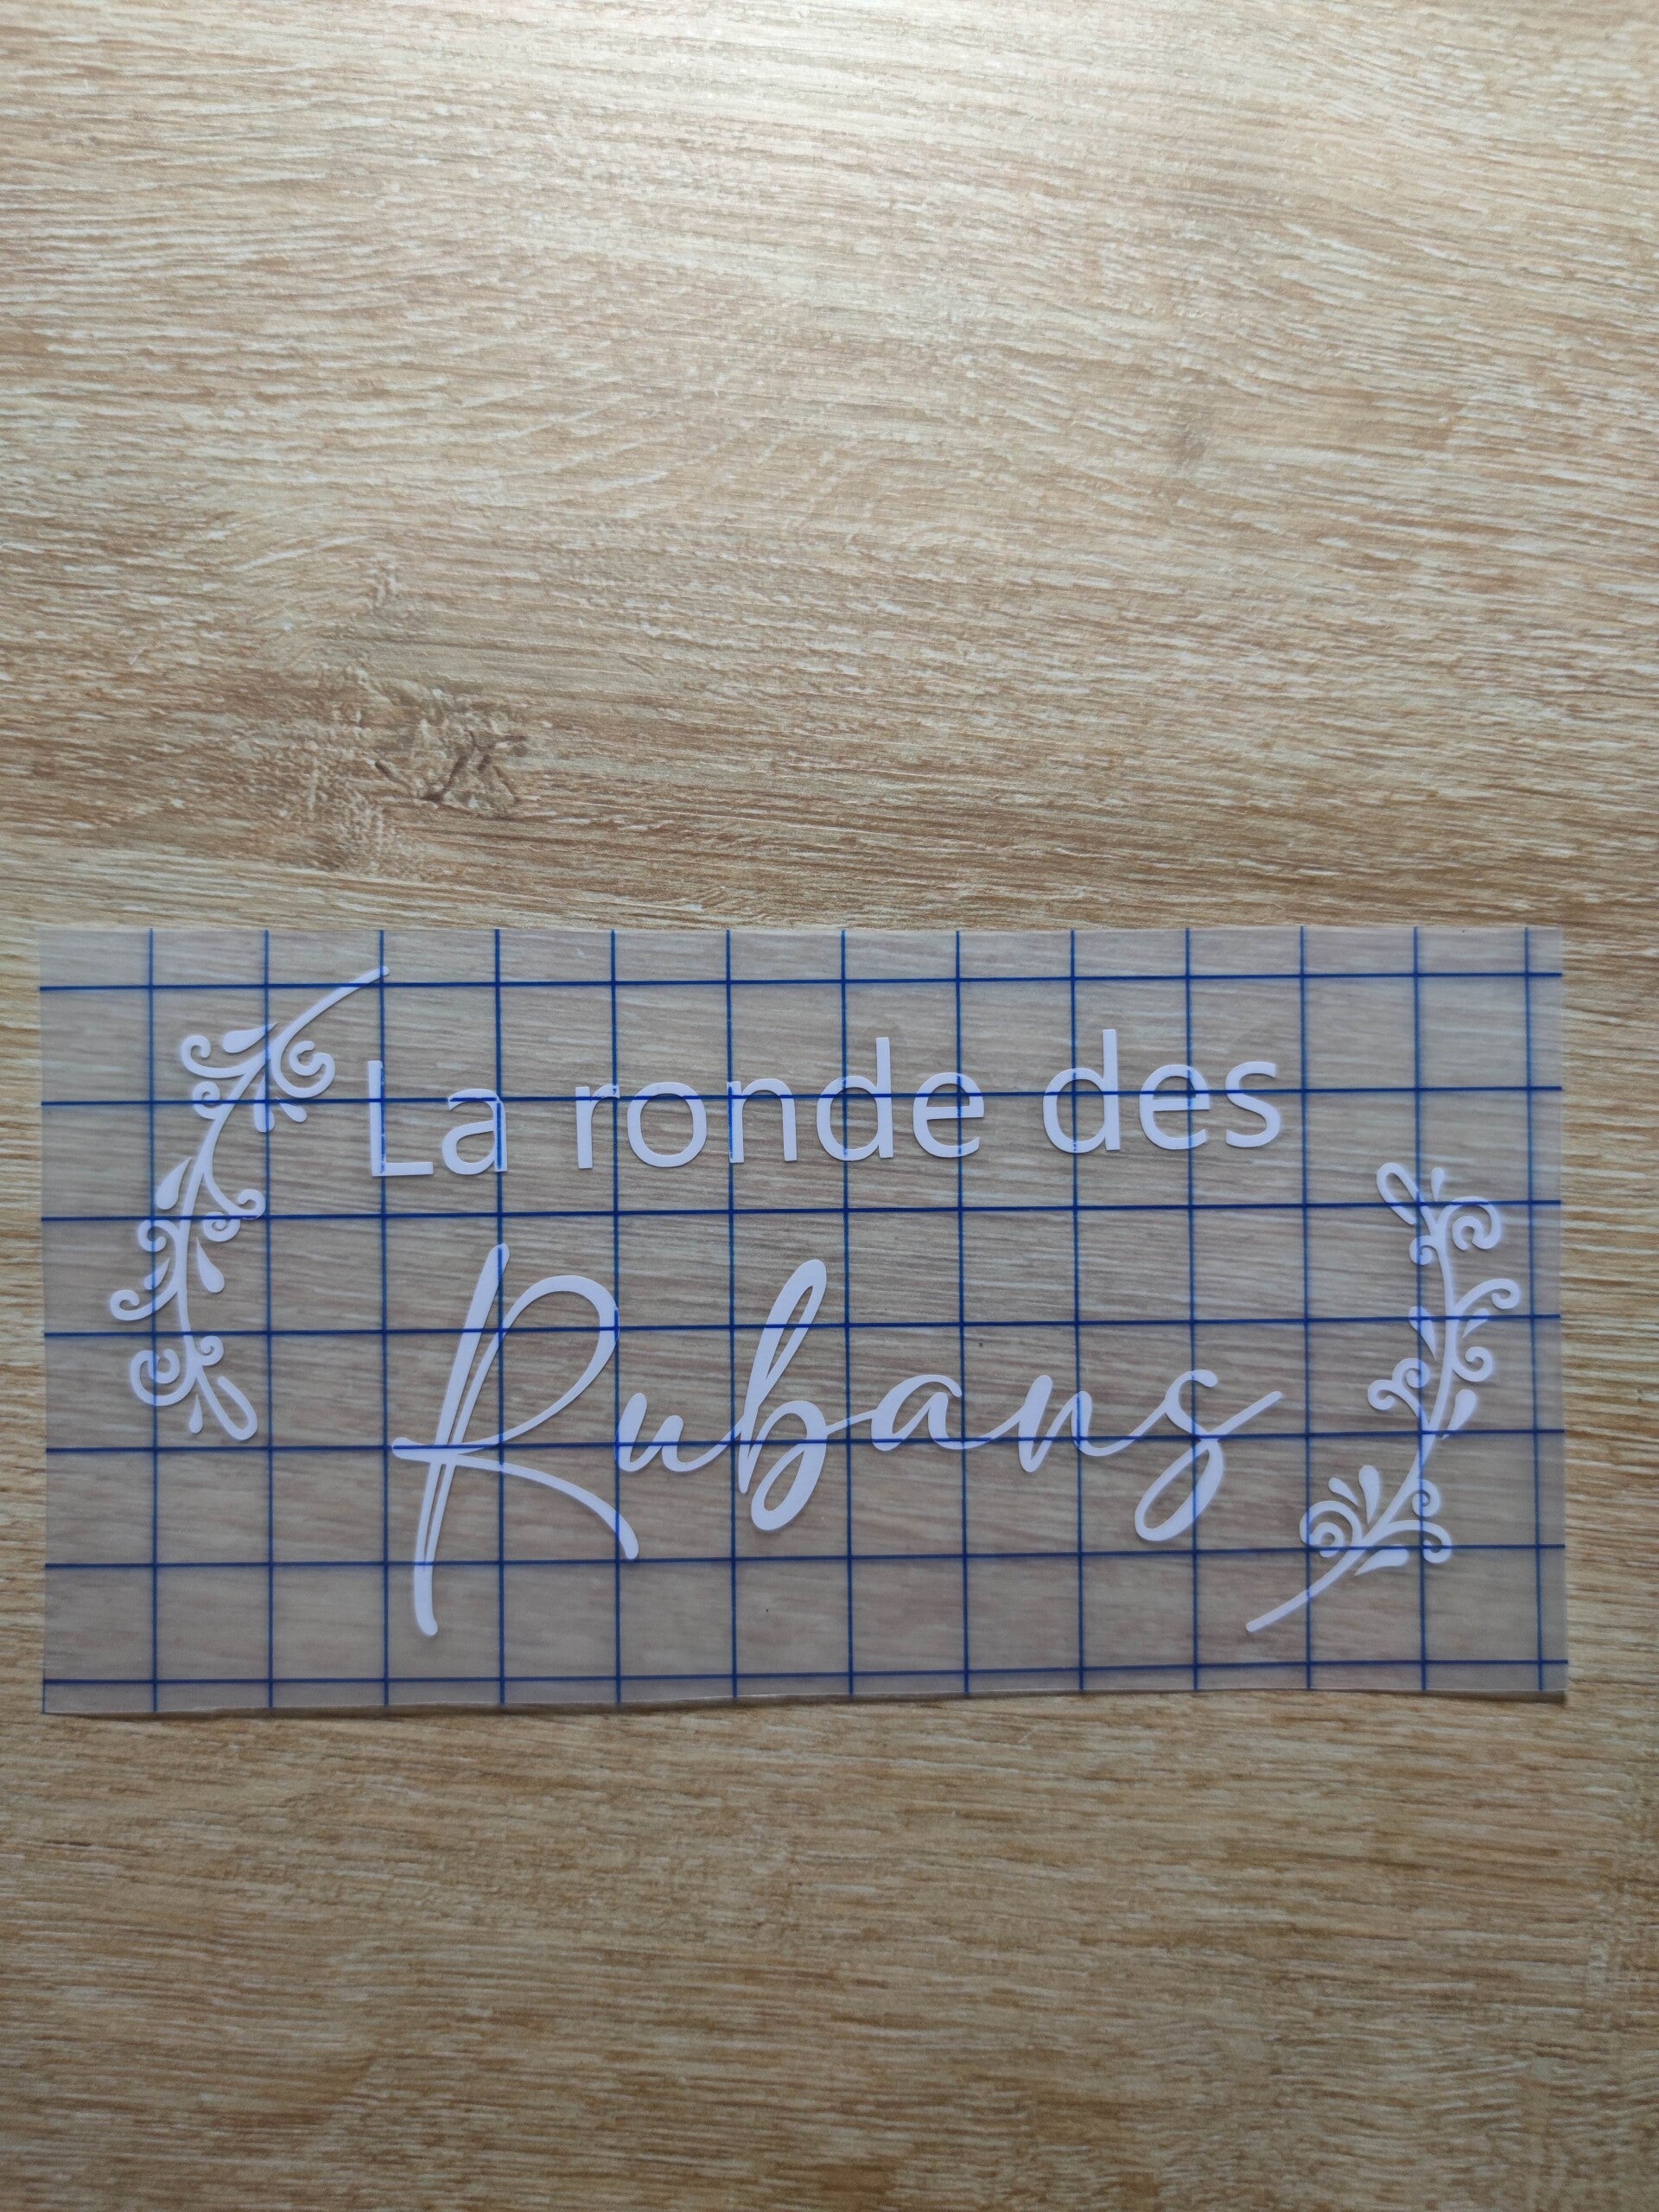 La ronde des
Rubans